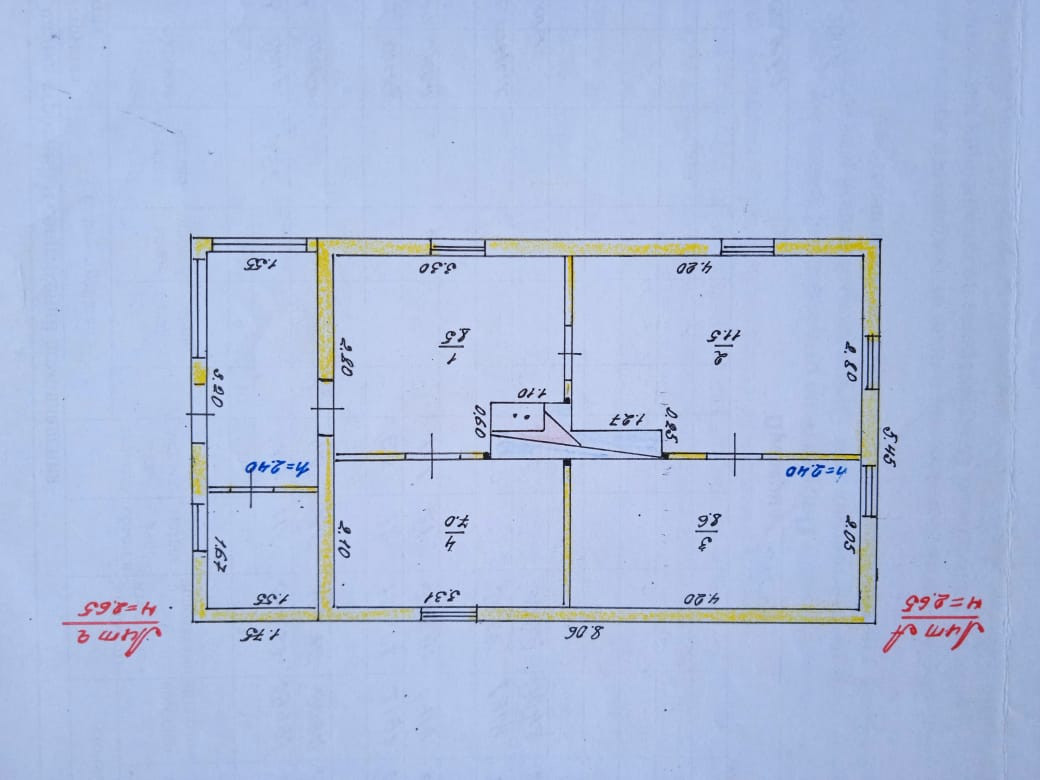 Лит А
H=2.65
8.06
1.75
Лит а
H=2.65
4.20
3.31
1.55
2.05
3
8.6
4
7.0
2.10
1.67
5.45
h=2.40
h=2.40
0.25
1.27
0.60
1.10
2.80
2
11.5
1
8.5
2.80
3.20
4.20
3.30
1.55